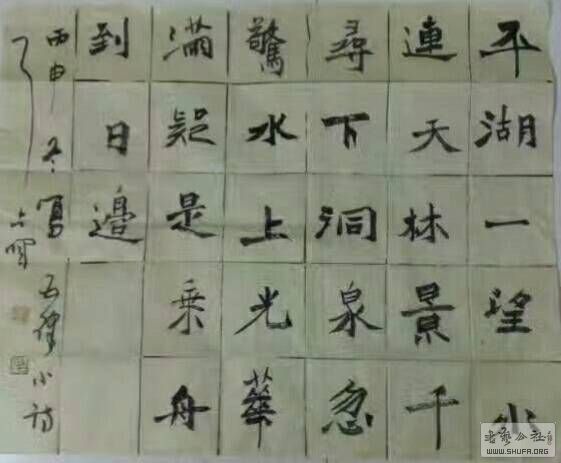 平湖一望水
連天林景千
尋下洞泉忽
驚水上光華
滿疑是乘舟
到日邊
丙申冬寫五律小詩
WWW.SHUFA.ORG